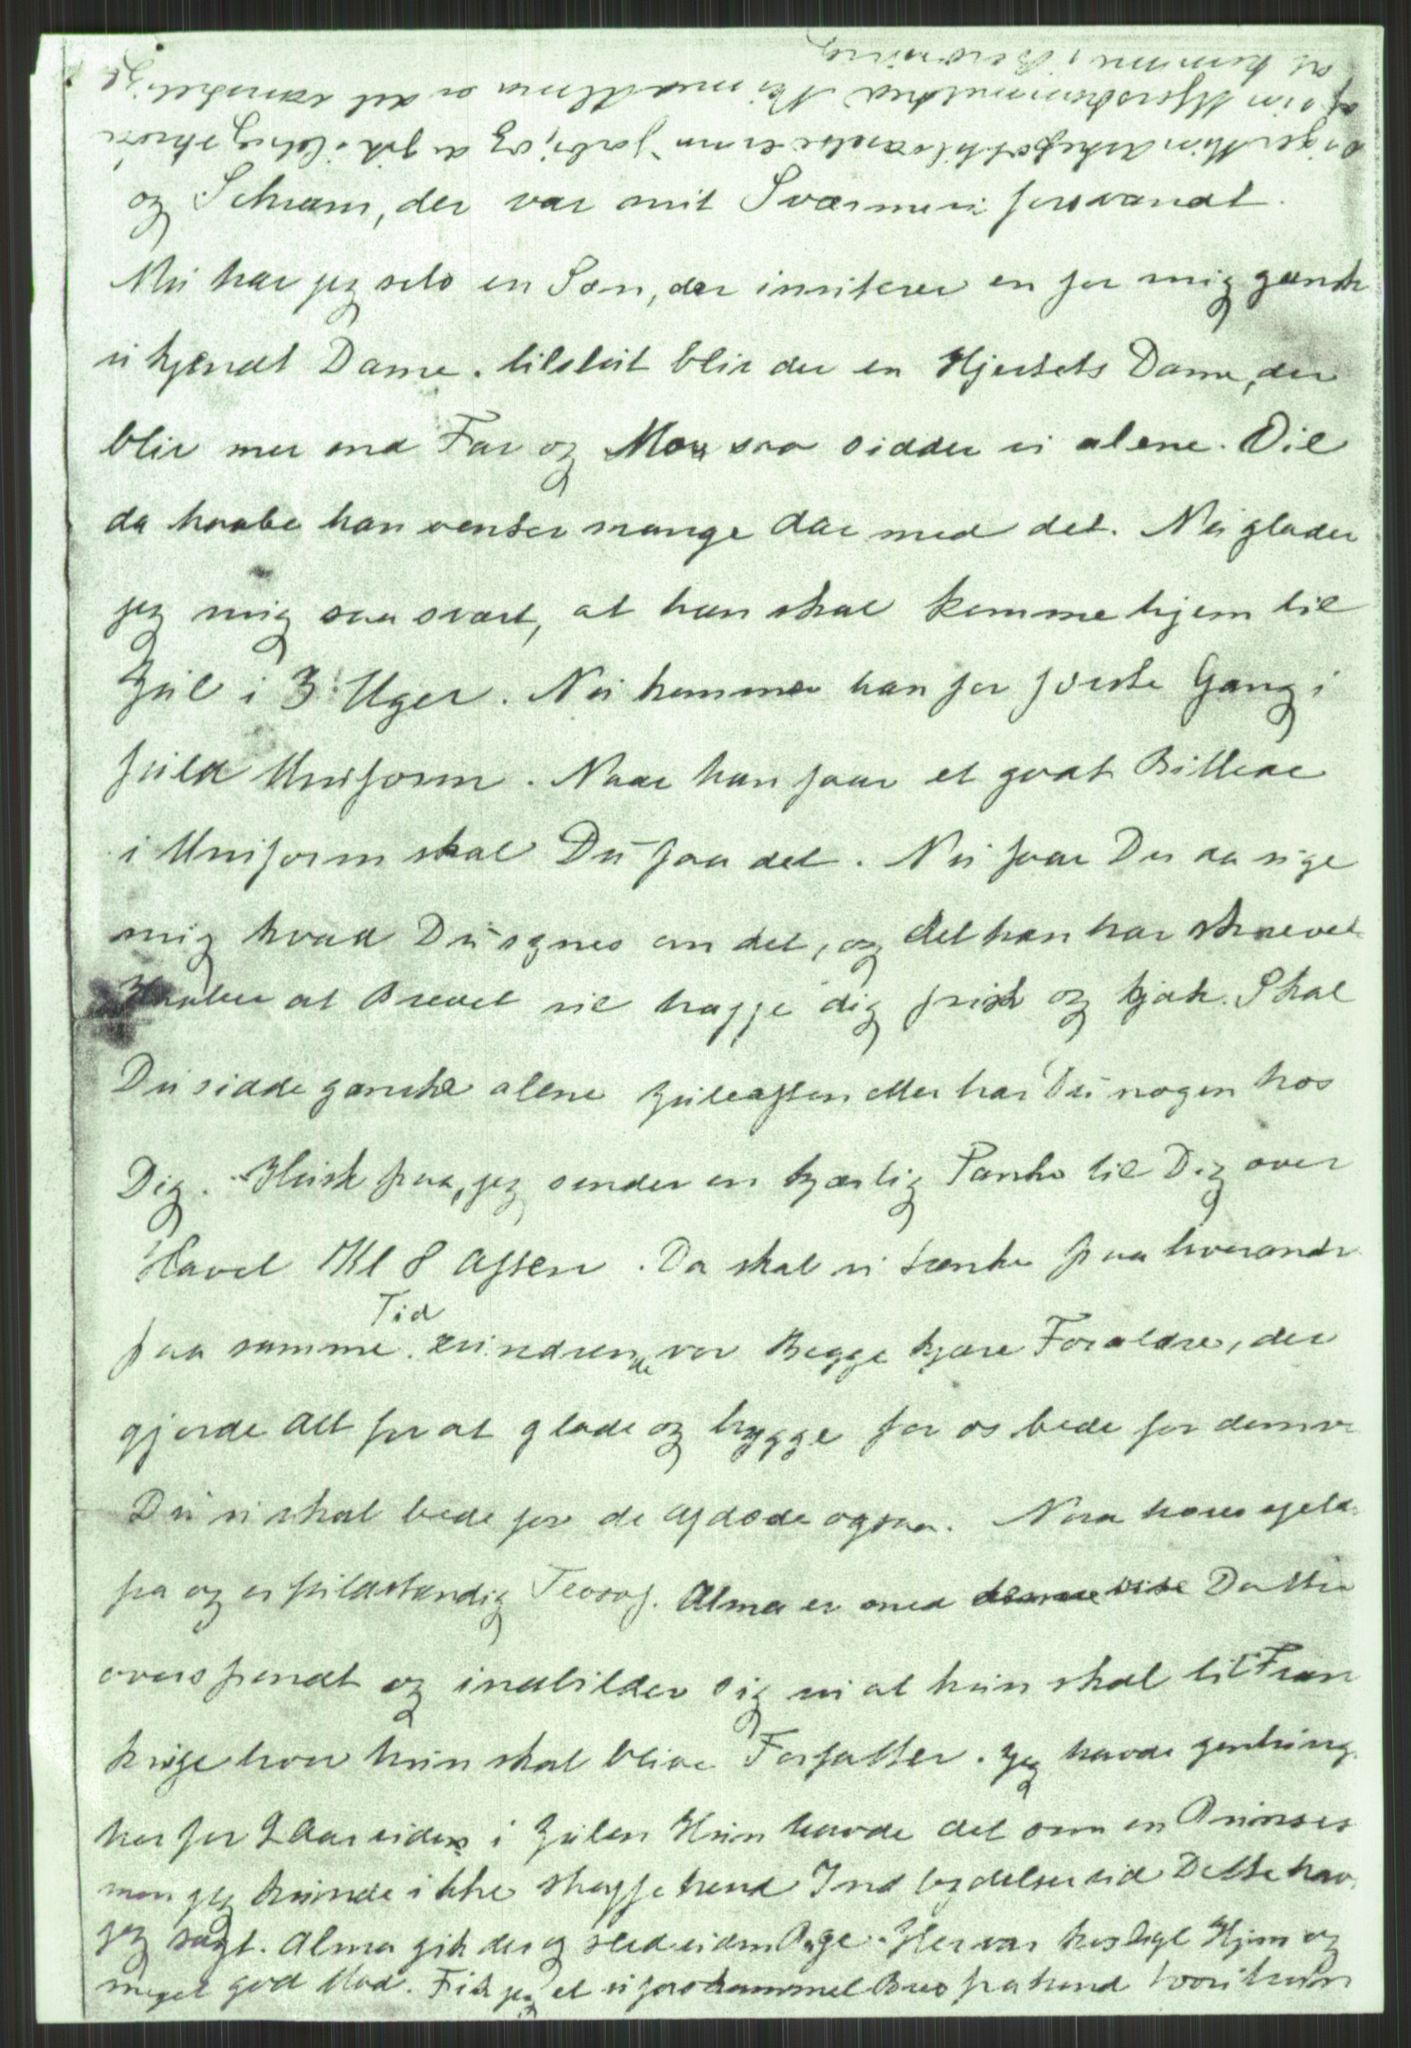 og Schram, der var mit Sværmeri forsvandt.
Nu har jeg selv en Søn, der inviterer en for mig gansk
ukjendt Dame. tilslut blir der en Hjertets Dame, der
blir mer end Far og Mor saa sidder vi alene. Vil
da haabe han venter mange Aar med det. Nu glæder
jeg mig saa svært, at han skal komme hjem til
Jul i 3 Uger. Nu kommer han for første Gang i
fuld Uniform. Naar han faar et godt Billede
i Uniform skal Du faa det. Nu faar Du da sige
mig hvad Du synes om det, og det han har skrevet
Haaber at Brevet vil træffe dig frisk og kjæk. Skal
Du sidde ganske alene Juleaften eller har Du nogen hos
Dig. Husk paa, jeg sender en kjærlig Tanke til Dig over
Havet Kl 8 Aften. Da skal vi tænke paa hverandr
paa samme Tid erindrende vor Begge kjære Forældre, der
gjorde alt for at glæde og hygge for os bede for dem
Du vi skal bede for de afdøde ogsaa. Nora
pa og er fuldstændig Teosof. Alma er med Datter
overspændt og indbilder sig at hun skal til Fran
krige hvor hun skal blive Forfatter. Jeg havde
her for 2 Aar siden i Julen Hun havde det som en Prinses
men jeg kunde ikke skaffe hend Indbydelser ud Dette hav
jeg sagt. Alma gik der og Her var hosligt Hjem og
meget god Mad. Fik jeg et uforskammet Brev fra hend hvori hun
at komme i Berøring